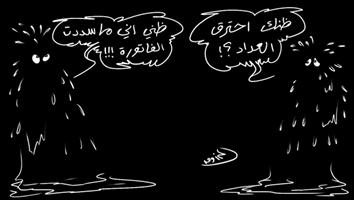 ظنك احترق
العداد؟!
ظني اني ما سددت
الفاتورة !!!